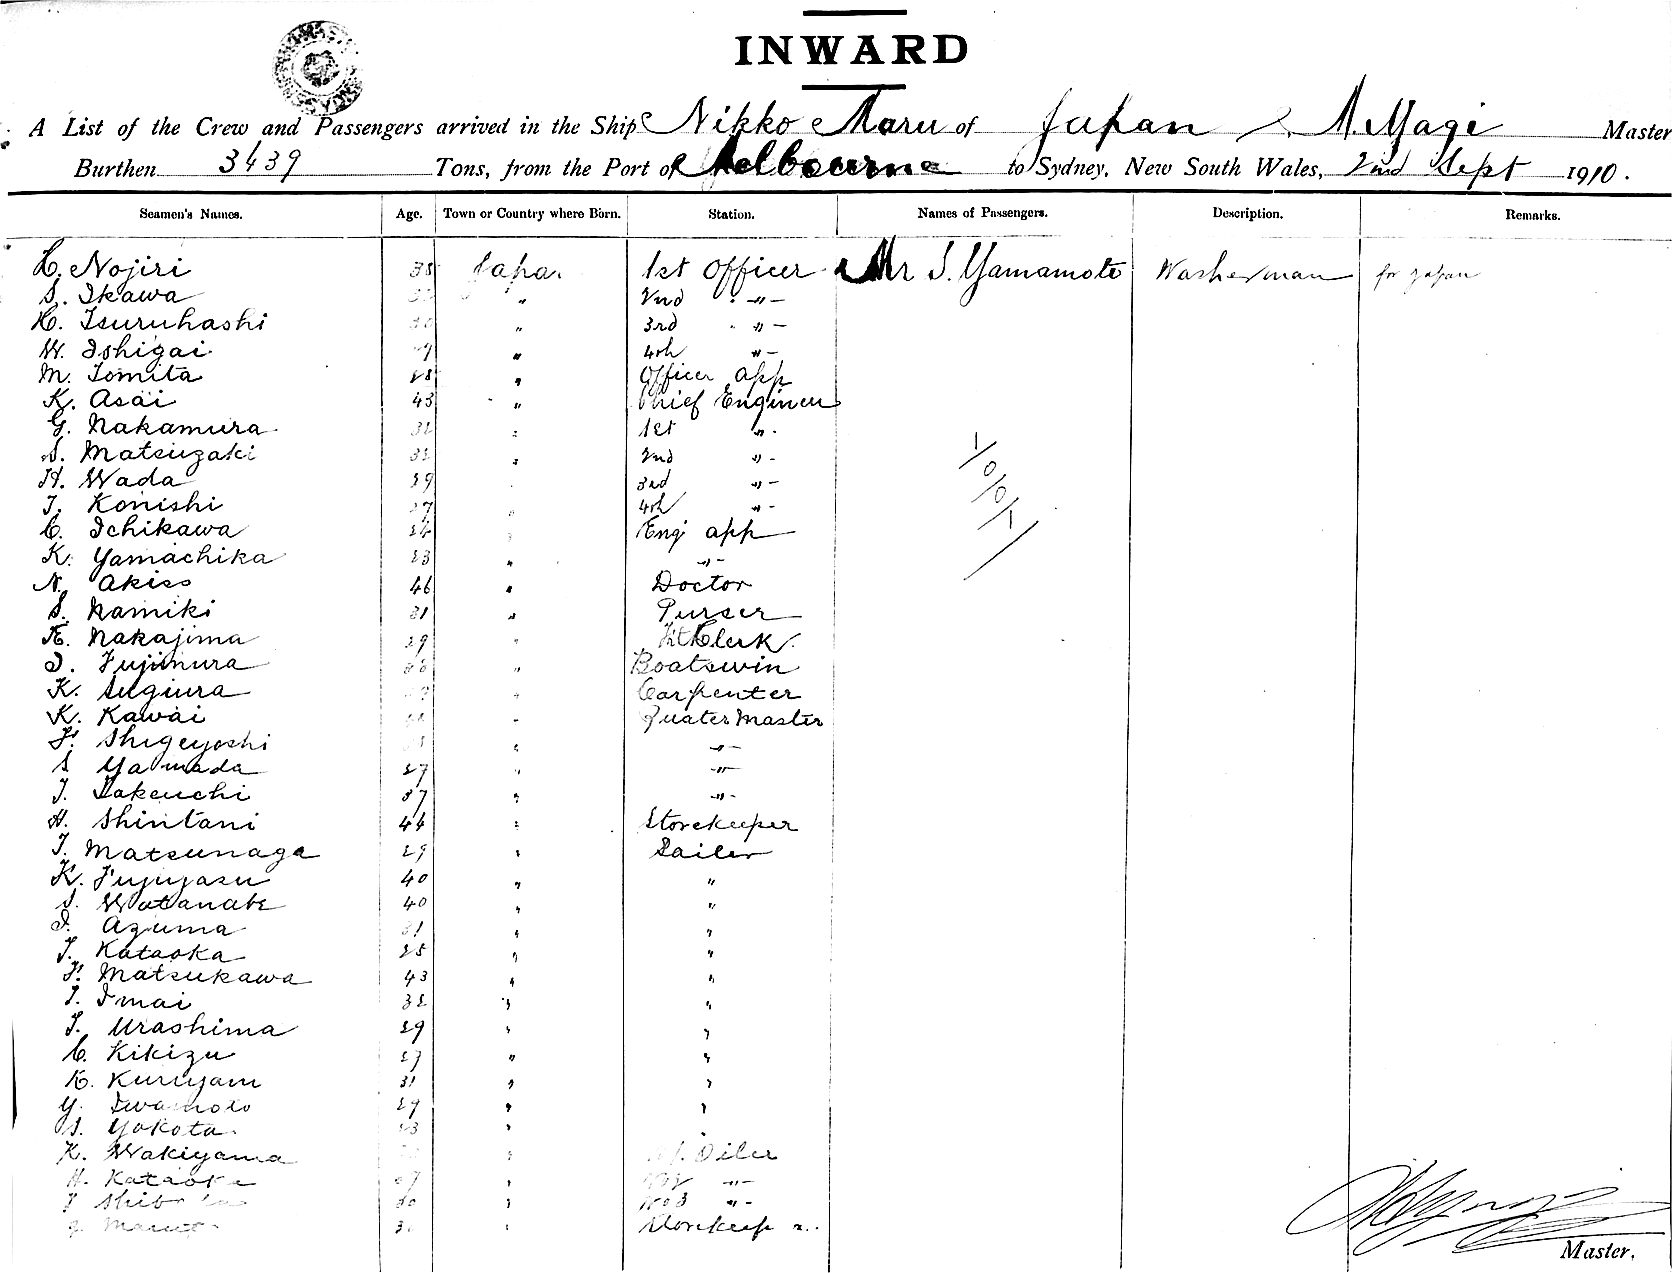 INWARD
A List of the Crew and Passengers arrived in the Ship Nikko Maru of Japan M. Yagi Master
Burthen 3439 Tons, from the Port of Melbourne to Sydney, New South Wales, 2nd Sept 1910.
Seamen's Names. Age. Town or Country where Born. Station. Names of Passengers. Description. Remarks.
Nojiri 38 Japan 1st Officer Mr S. Yamamoto Washerman for Japan
S. Ikawa " 2nd "
H. Tsuruhashi 30 " 3rd "
W. Ishigai " 4th "
M. Tomita 28 " Officer app
K. Asai 43 " Chief Engineer
G. Nakamura 32 " 1st "
S. Matsuzaki 32 " 2nd "
H. Wada 29 3rd "
T. Konishi 27 " 4th "
C. Ichikawa 24 " Eng app
K. Yamachika 23 " "
N. 46 " Doctor
S. Namiki 31 " Purser
K. Nakajima 29 " Clerk.
Fujimura " Boatswin
K. Sugiura " Carpenter
K. Kawai " Quater Master
F. Shigeyoshi " "
S Yamada 27 " "
T. Takeuchi 37 " "
H. Shintani 44 " Storekeeper
T. Matsunaga 29 " Sailer
K. Fujiyasu 40 " "
S. Watanabe 40 " "
Azuma 31 " "
T. Kataoka 25 " "
F. Matsukawa 43 " "
T. Imai 32 " "
T. Urashima 29 " "
C. Kikizu 27 " "
K. Kuriyam 31 " "
Y. Iwamoto 29 " "
S. Yokota 23 "
K. Wakiyama " Oiler
H. Kataoka 27 " "
30 " No 3 "
" Storekeep
1/0/0/1/
Master.